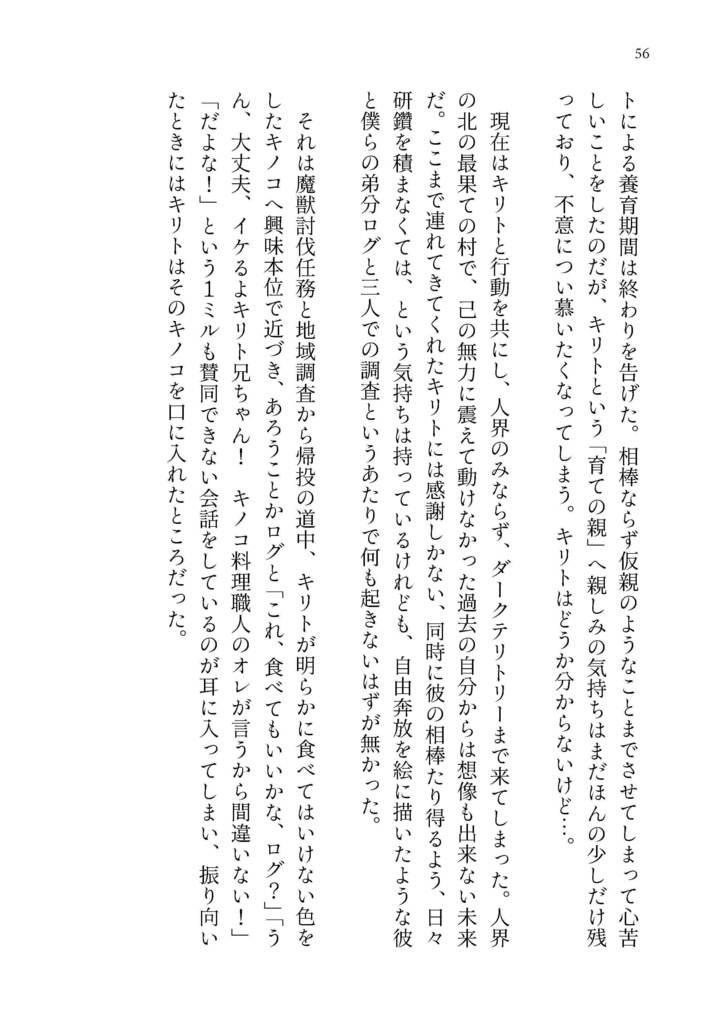 56
トによる養育期間は終わりを告げた。相棒ならず仮親のようなことまでさせてしまって心苦
しいことをしたのだが、キリトという「育ての親」へ親しみの気持ちはまだほんの少しだけ残
っており、不意につい慕いたくなってしまう。キリトはどうか分からないけど…。
現在はキリトと行動を共にし、人界のみならず、ダークテリトリーまで来てしまった。人界
の北の最果ての村で、己の無力に震えて動けなかった過去の自分からは想像も出来ない未来
だ。ここまで連れてきてくれたキリトには感謝しかない、同時に彼の相棒たり得るよう、日々
研鑽を積まなくては、という気持ちは持っているけれども、自由奔放を絵に描いたような彼
と僕らの弟分ログと三人での調査というあたりで何も起きないはずが無かった。
それは魔獣討伐任務と地域調査から帰投の道中、キリトが明らかに食べてはいけない色を
したキノコへ興味本位で近づき、あろうことかログと「これ、食べてもいいかな、ログ？」「う
ん、大丈夫、イケるよキリト兄ちゃん！　キノコ料理職人のオレが言うから間違いない！」
「だよな！」という１ミルも賛同できない会話をしているのが耳に入ってしまい、振り向い
たときにはキリトはそのキノコを口に入れたところだった。